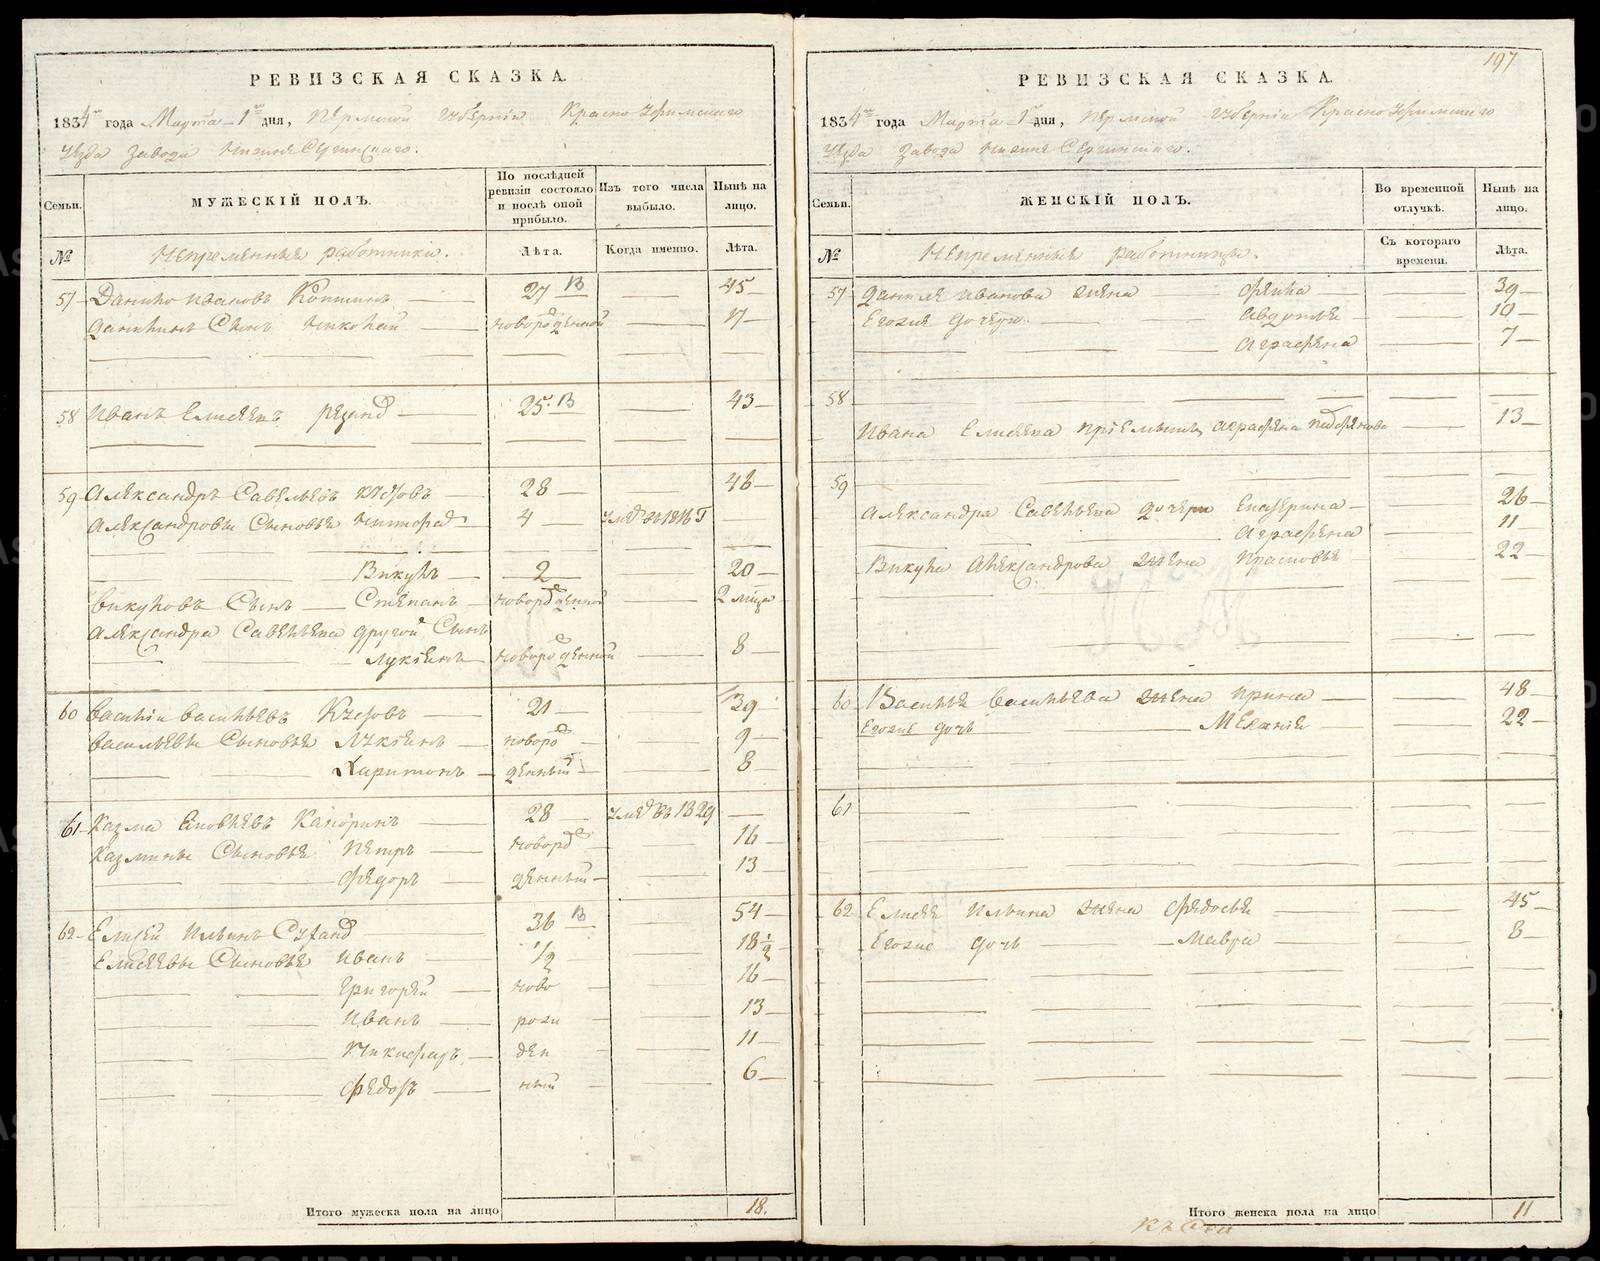 РЕВИЗСКАЯ СКАЗКА.
1834го года Марта 1го дня, Пермской губернии Красноуфимского
уезда завода Нижне Сергинскаго.
Семьи.
МУЖЕСКІЙ ПОЛЪ.
По послѣдней ревизіи состояло и послѣ оной прибыло.
Изъ того числа выбыло.
Нынѣ на лицо.
№
Непременныя работники.
Лѣта.
Когда именно.
Лѣта.
57 Данило Ивановъ 27 В 45
Данилинъ Сынъ Николай новорожденной 17
58 Иванъ Елисеевъ 25. В 43
59 Александръ Савельевъ 28 46
Александровы Сыновья 4
Викулъ 2 20
Викуловъ Сынъ Степанъ новорожденной 2 мѣца
Александра Савельева другой Сынъ
Лукіянъ новорожденной 8
60 Василіи Васильевъ 21 39
Васильевы Сыновья Лукіянъ новоро 9
Харитонъ жденныи 8
61 Казма 28 умѣ въ 1829
Казмины Сыновья Петръ новорож 16
Федоръ денныи 13
62 Елисѣй Ильинъ 36 В 54
Елисеевы Сыновья Иванъ 1/2 18 1/2
Григорей ново 16
Иванъ рож 13
Никифоръ ден 11
Федоръ ныи 6
Итого мужеска пола на лицо 18.
197
РЕВИЗСКАЯ СКАЗКА.
1834го года Марта 1го дня, Пермской губерніи Красноуфимскаго
уезда завода Нижне Сергинскаго.
Семьи.
ЖЕНСКІЙ ПОЛЪ.
Во временной отлучкѣ.
Нынѣ на лицо.
№
Непременныя работницы.
Съ котораго времени.
Лѣта.
57 Данила Иванова жена 39
Егоже дочери Авдотья 10
Аграфена 7
58
Ивана Елисеева Аграфена 13
59
Александра Савельева дочери Екатерина 26
Аграфена 11
Викула Александрова жена Прасковья 22
60 Василья Васильева жена Ирина 48
Егоже дочь Меланія 22
61
62 Елисея Ильина жена Федосья 45
Егоже дочь Мавра 8
Итого женска пола на лицо 11